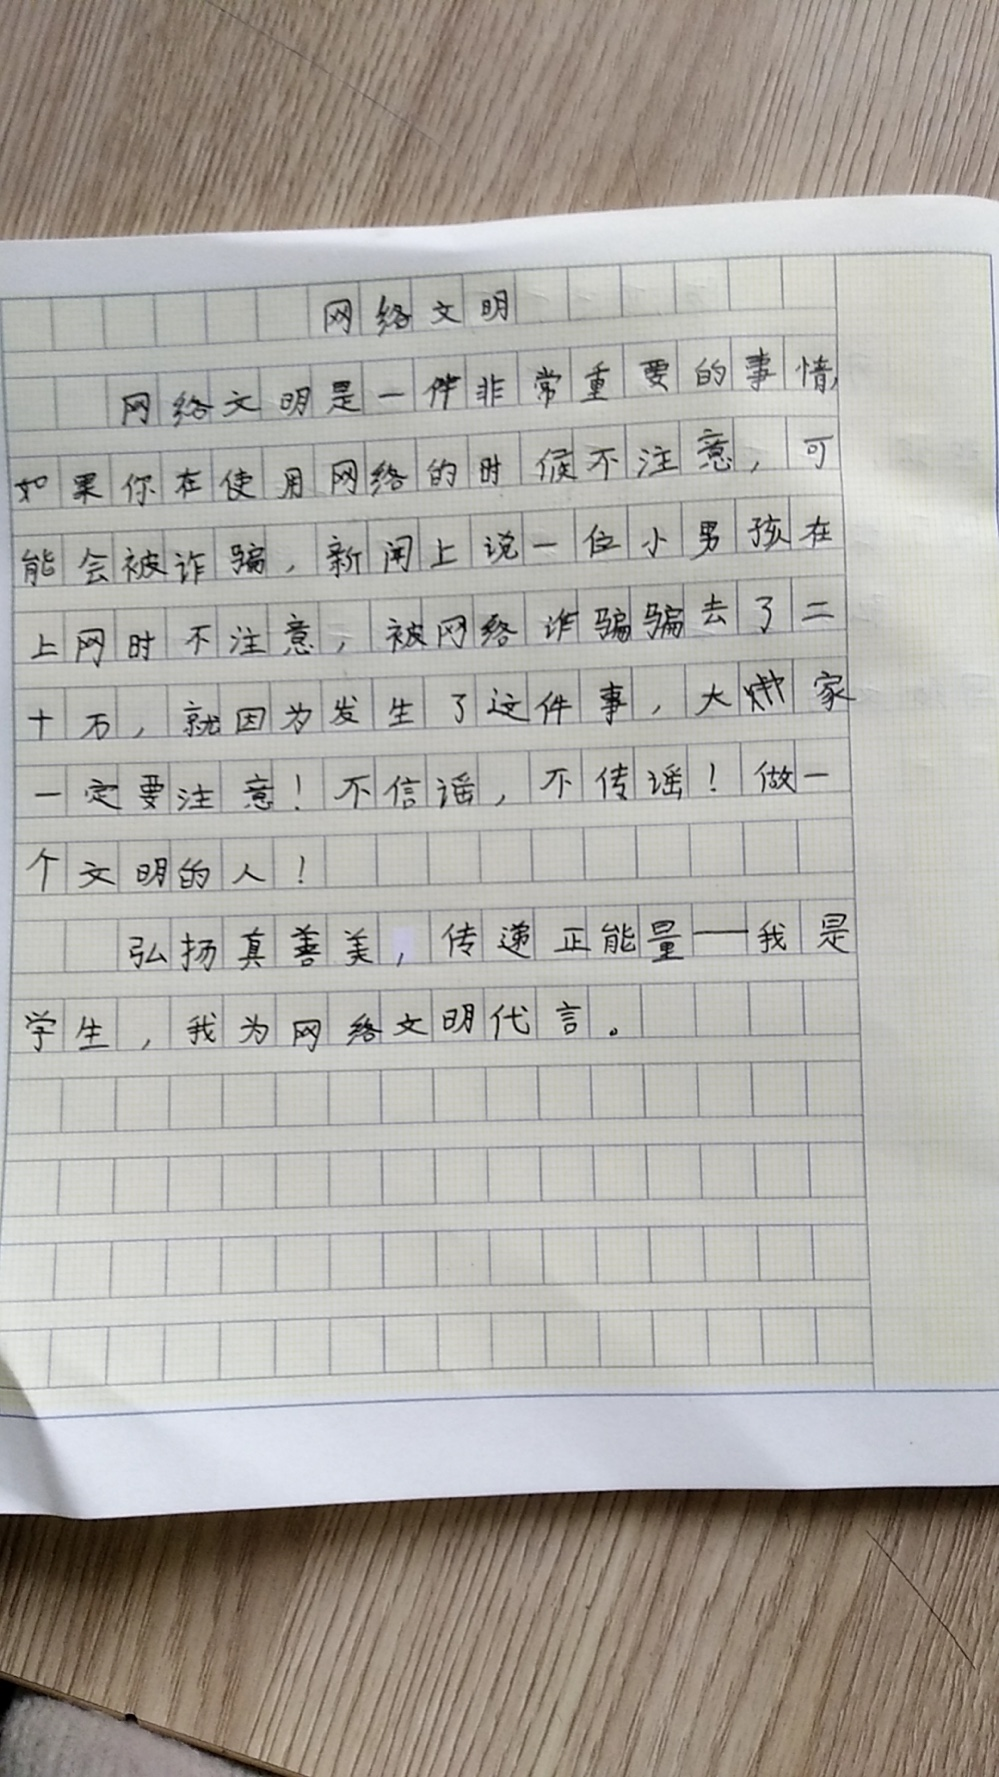 网络文明
网络文明是一件非常重要的事情,
如果你在使用网络的时候不注意，可
能会被诈骗，新闻上说一位小男孩在
上网时不注意，被网络诈骗骗去了二
十万，就因为发生了这件事，大家
一定要注意！不信谣，不传谣！做一
个文明的人！
弘扬真善美，传递正能量——我是
学生，我为网络文明代言。